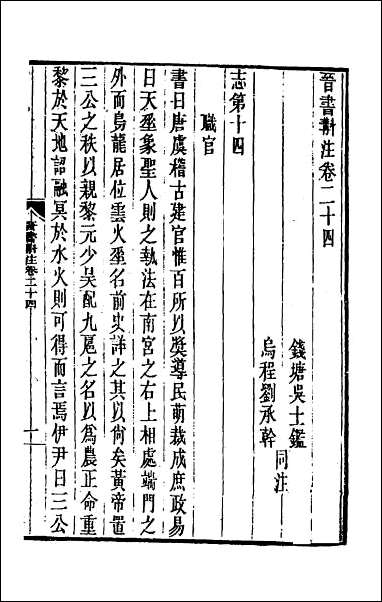 晉書斠注卷二十四
錢塘吳士鑑
烏程劉承幹
同注
志第十四
職官
書曰唐虞稽古建官惟百所以奬導民萌裁成庶政易
曰天垂象聖人則之執法在南宮之右上相處端門之
外而鳥龍居位雲火垂名前史詳之其以尙矣黃帝置
三公之秩以親黎元少昊配九扈之名以爲農正命重
黎於天地詔融冥於水火則可得而言焉伊尹曰三公
晉書斠注卷二十四
一